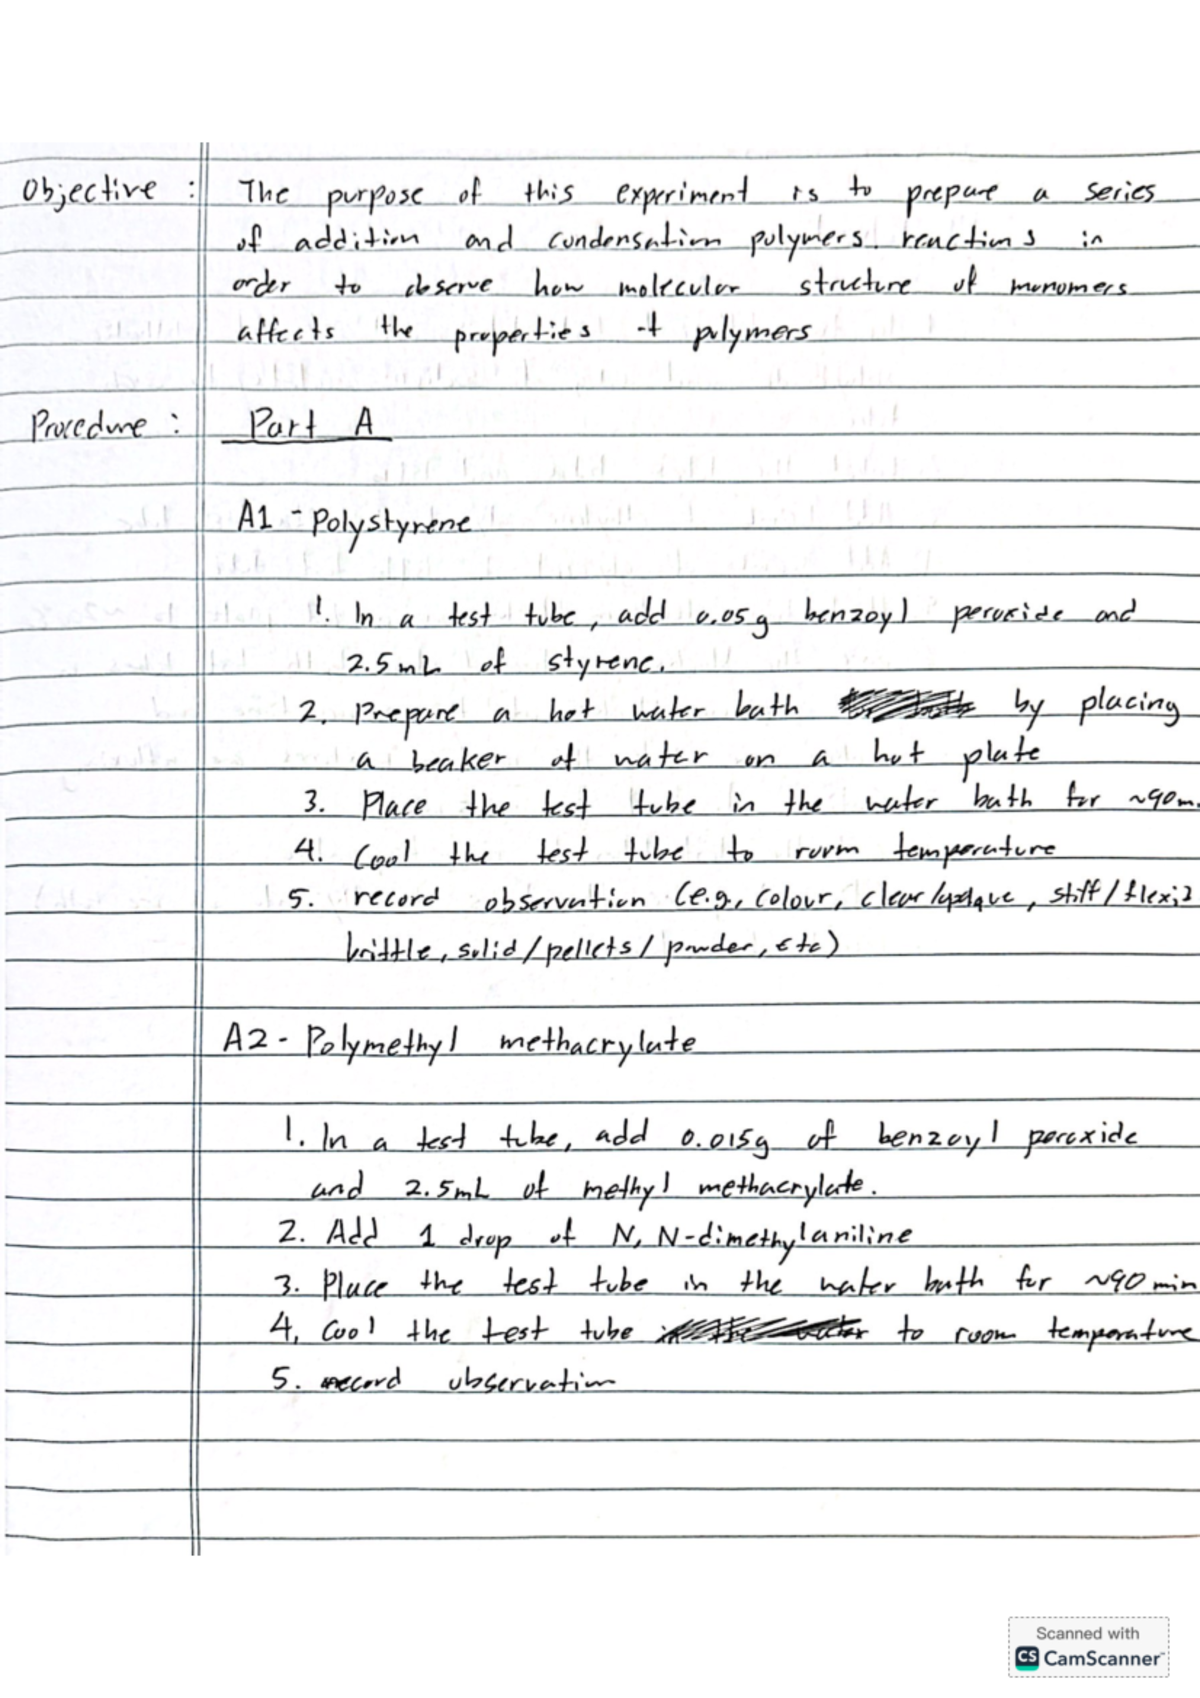 Objective : The purpose of this experiment is to prepare a series
of addition and condensation polymers. reactions in
order to observe how molecular structure of monomers
affects the properties of polymers
Procedure : Part A
A1 - Polystyrene
1. In a test tube, add 0.05g benzoyl peroxide and
2.5mL of styrene.
2. Prepare a hot water bath by placing
a beaker of water on a hot plate
3. Place the test tube in the water bath for ~90m
4. Cool the test tube to room temperature
5. record observation (e.g., colour, clear/opaque, stiff/flexib
brittle, solid/pellets/powder, etc)
A2 - Polymethyl methacrylate
1. In a test tube, add 0.015g of benzoyl peroxide
and 2.5mL of methyl methacrylate.
2. Add 1 drop of N, N-dimethylaniline
3. Place the test tube in the water bath for ~90 min
4. Cool the test tube to room temperature
5. record observation
Scanned with
CS CamScanner